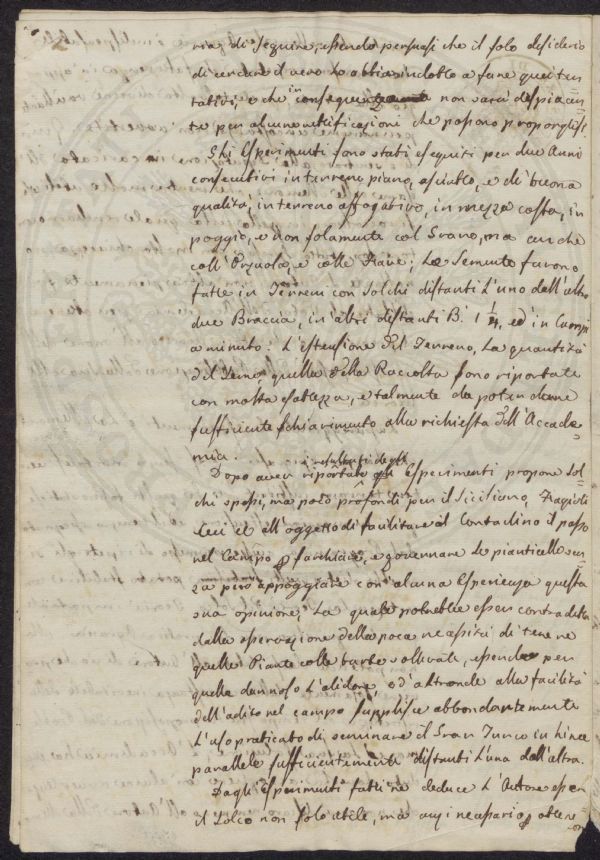 ria di seguire, essendo persuasi che il solo desiderio
di cercare il vero Lo abbia indotto a fare quei ten
tativi, e che in conseguenza non sarà dispiacen
te per alcune rettificazioni che possono proporglisi.
Gli Esperimenti sono stati eseguiti per due Anni
consecutivi in terreno piano, asciutto, e di buona
qualità, in terreno affogativo, in mezza costa, in
poggio, e non solamente col Grano, ma anche
coll'Orzuola, e colle Fave; Le Semente furono
fatte in Terreni con Solchi distanti L'uno dall'altro
due Braccia, in altri distanti B. 1 1/4, ed in Campi
a minuto: L'estensione del Terreno, La quantità
del Seme, quella della Raccolta sono riportate
con molta esatezza, e talmente da poterdarne
sufficiente schiarimento alla richiesta dell'Accade
mia.
i resultati degli
Dopo aver riportate Esperimenti propone Sol
chi spessi, ma poco profondi per il Siciliano,
ed all'oggetto di facilitare al Contadino il passo
nel Campo p sarchiare, e governare Le pianticelle sen
za però appoggiare con alcuna Esperienza questa
sua opinione, La quale potrebbe esser contradetta
dalla osservazione della poca necessità di tenere
quelle Piante colle barbe sollevate, essendo per
quelle dannoso L'alidore, e d'altronde alla facilità
dell'adito nel campo supplisce abbondantemente
L'uso praticato di seminare il Gran Turco in Linee
parallele sufficientemente distanti L'una dall'altra.
Dagli Esperimenti fatti ne deduce L'Autore esser
il Solco non solo utile, ma anzi necessario p ottene